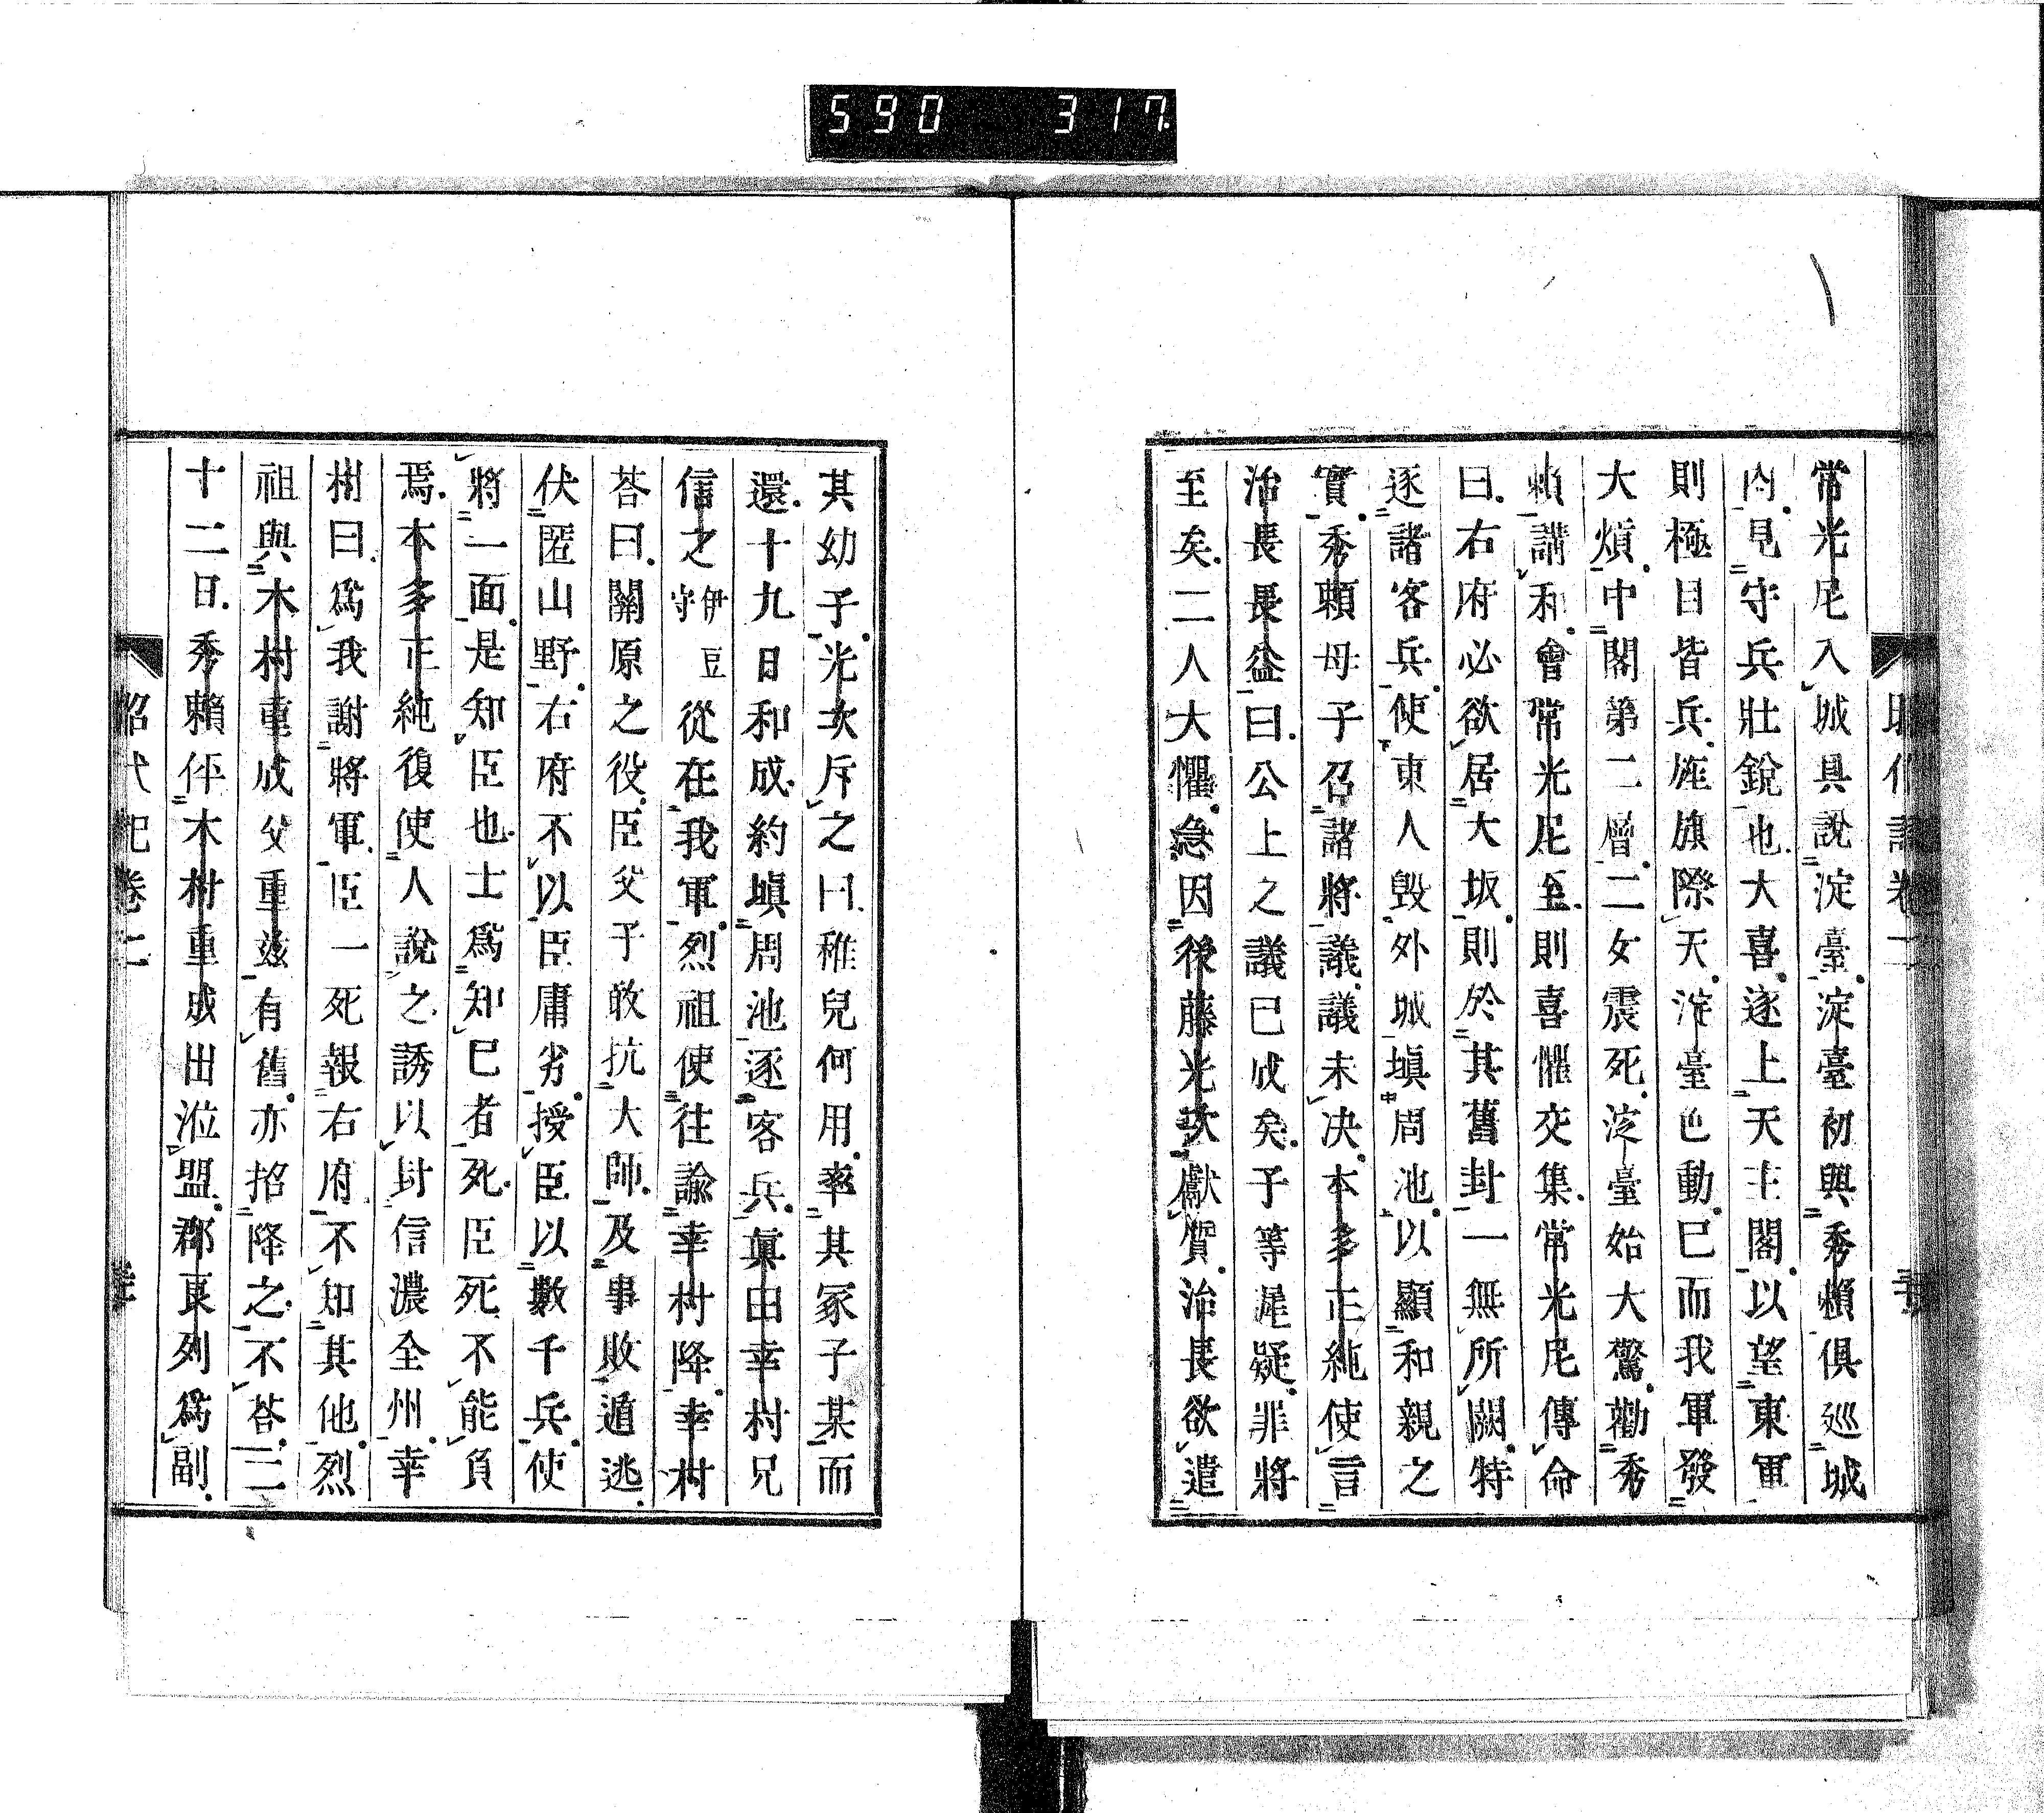 590 317
常光尼入城具說淀臺淀臺初與秀賴俱巡城
內見守兵壯銳也大喜逐上天主閣以望東軍
則極目皆兵旌旗際天淀臺色動已而我軍發
大熕中閣第二層二女震死淀臺始大驚勸秀
賴講和會常光尼至則喜懼交集常光尼傳命
曰右府必欲居大坂則於其舊封一無所闕特
逐諸客兵使東人毀外城塡周池以顯和親之
實秀賴母子召諸將議議未决本多正純使言
治長長益曰公上之議已成矣予等遲疑罪將
至矣二人大懼急因後藤光次獻質治長欲遣
其幼子光次斥之曰稚兒何用率其冢子某而
還十九日和成約塡周池逐客兵眞田幸村兄
信之伊豆守從在我軍烈祖使往諭幸村降幸村
荅曰關原之役臣父子敢抗大師及事敗遁逃
伏匿山野右府不以臣庸劣授臣以數千兵使
將一面是知臣也士爲知已者死臣死不能負
焉本多正純復使人說之誘以封信濃全州幸
村曰爲我謝將軍臣一死報右府不知其他烈
祖與木村重成父重茲有舊亦招降之不荅二
十二日秀賴伻木村重成出涖盟郡良列爲副
昭代記卷二